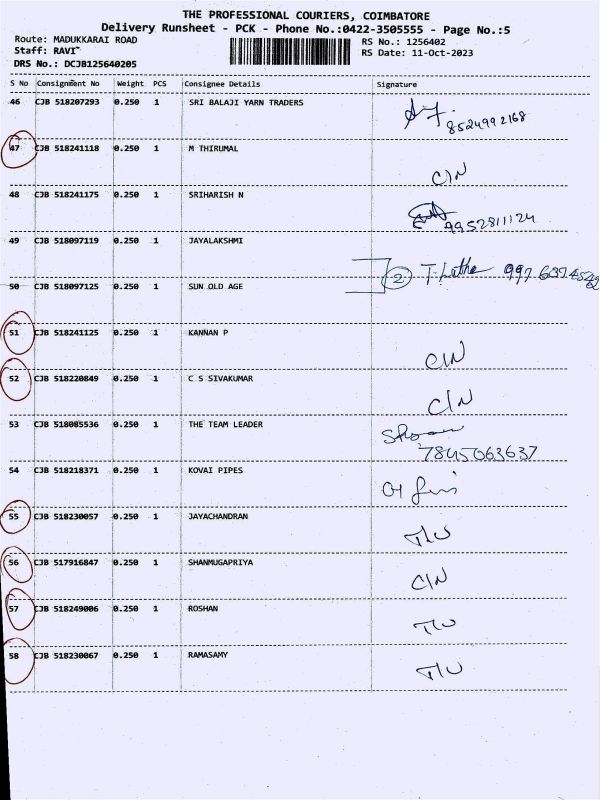 THE PROFESSIONAL COURIERS, COIMBATORE
Delivery Runsheet - PCK - Phone No.:0422-3505555 - Page No.:5
Route: MADUKKARAI ROAD RS No.: 1256402
Staff: RAVI RS Date: 11-Oct-2023
DRS No.: DCJB125640205
S No Consignment No Weight PCS Consignee Details Signature
46 CJB 518207293 0.250 1 SRI BALAJI YARN TRADERS
8524992168
47 CJB 518241118 0.250 1 M THIRUMAL
C/N
48 CJB 518241175 0.250 1 SRIHARISH N
9952811124
49 CJB 518097119 0.250 1 JAYALAKSHMI
2 T. Latha
50 CJB 518097125 0.250 1 SUN OLD AGE
51 CJB 518241125 0.250 1 KANNAN P
C/N
52 CJB 518220849 0.250 1 C S SIVAKUMAR
C/N
53 CJB 518085536 0.250 1 THE TEAM LEADER
7845063637
54 CJB 518218371 0.250 1 KOVAI PIPES
55 CJB 518230057 0.250 1 JAYACHANDRAN
T/U
56 CJB 517916847 0.250 1 SHANMUGAPRIYA
C/N
57 CJB 518249006 0.250 1 ROSHAN
T/U
58 CJB 518230067 0.250 1 RAMASAMY
T/U